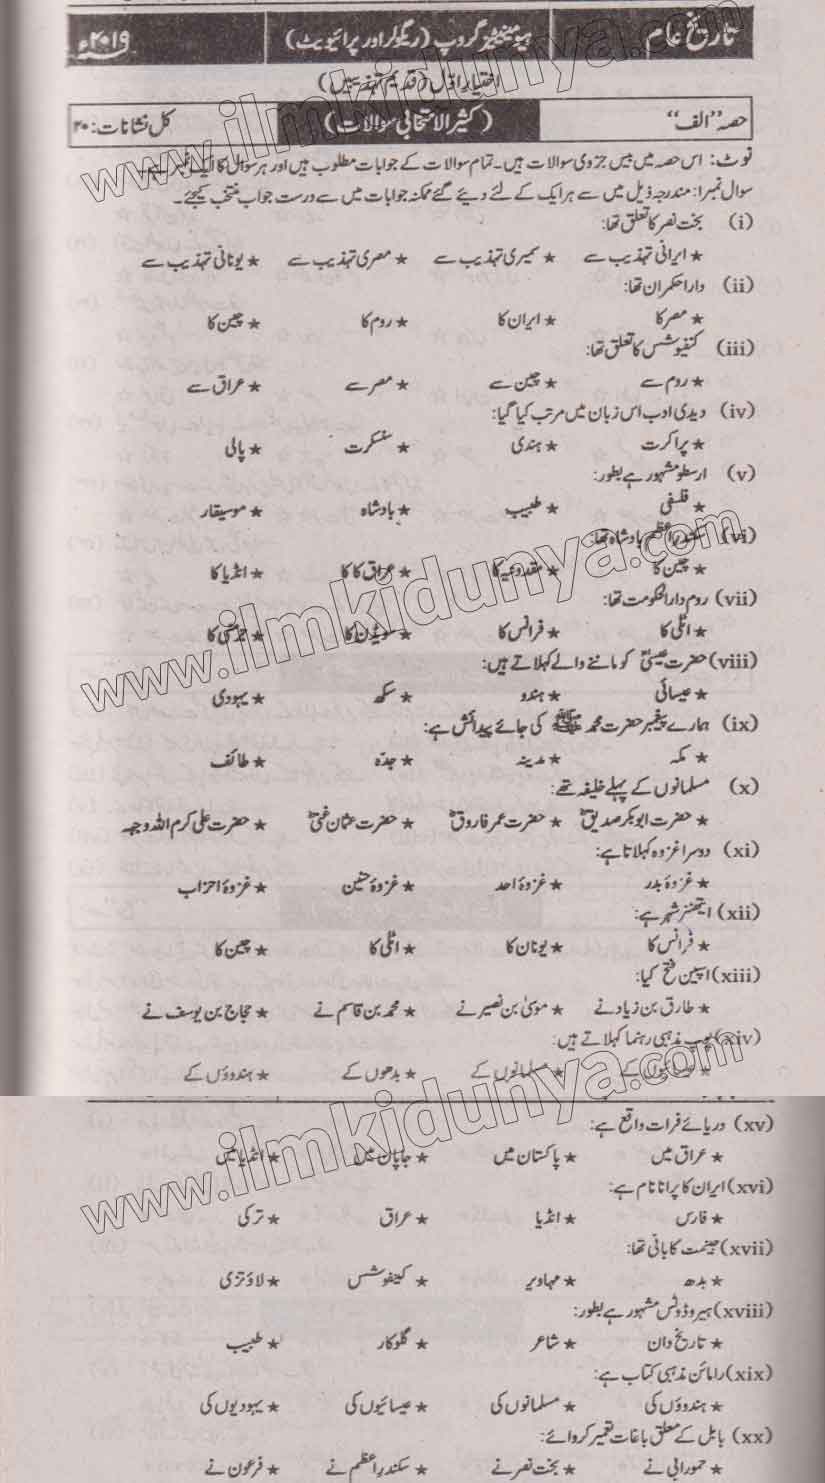 تاریخ عام ہیومینیٹیز گروپ (ریگولر اور پرائیویٹ) ۲۰۱۹ء
اختیار اوّل (قدیم تہذیبیں)
حصہ "الف" (کثیر الامتحابی سوالات) کل نشانات: ۲۰
نوٹ: اس حصہ میں بیس جزوی سوالات ہیں۔ تمام سوالات کے جوابات مطلوب ہیں اور ہر سوال کا ایک نمبر ہے
سوال نمبر۱: مندرجہ ذیل میں سے ہر ایک کے لئے دیئے گئے ممکنہ جوابات میں سے درست جواب منتخب کیجئے۔
(i) بخت نصر کا تعلق تھا:
★ ایرانی تہذیب سے ★ سمیری تہذیب سے ★ مصری تہذیب سے ★ یونانی تہذیب سے
(ii) دارا حکمران تھا:
★ مصر کا ★ ایران کا ★ روم کا ★ چین کا
(iii) کنفیوشس کا تعلق تھا:
★ روم سے ★ چین سے ★ مصر سے ★ عراق سے
(iv) ویدی ادب اس زبان میں مرتب کیا گیا:
★ پراکرت ★ ہندی ★ سنسکرت ★ پالی
(v) ارسطو مشہور ہے بطور:
★ فلسفی ★ طبیب ★ بادشاہ ★ موسیقار
(vi) سکندر اعظم بادشاہ تھا:
★ چین کا ★ مقدونیہ کا ★ عراق کا کا ★ انڈیا کا
(vii) روم دارالحکومت تھا:
★ اٹلی کا ★ فرانس کا ★ سویڈن کا ★ جرمنی کا
(viii) حضرت عیسیٰؑ کو ماننے والے کہلاتے ہیں:
★ عیسائی ★ ہندو ★ سکھ ★ یہودی
(ix) ہمارے پیغمبر حضرت محمد ﷺ کی جائے پیدائش ہے:
★ مکہ ★ مدینہ ★ جدّہ ★ طائف
(x) مسلمانوں کے پہلے خلیفہ تھے:
★ حضرت ابوبکر صدیقؓ ★ حضرت عمر فاروقؓ ★ حضرت عثمان غنیؓ ★ حضرت علی کرم اللہ وجہہ
(xi) دوسرا غزوہ کہلاتا ہے:
★ غزوۂ بدر ★ غزوۂ احد ★ غزوۂ حنین ★ غزوۂ احزاب
(xii) ایتھنز شہر ہے:
★ فرانس کا ★ یونان کا ★ اٹلی کا ★ چین کا
(xiii) اسپین فتح کیا:
★ طارق بن زیاد نے ★ موسیٰ بن نصیر نے ★ محمد بن قاسم نے ★ حجاج بن یوسف نے
(xiv) پوپ مذہبی رہنما کہلاتے ہیں:
★ عیسائیوں کے ★ مسلمانوں کے ★ بدھوں کے ★ ہندوؤں کے
(xv) دریائے فرات واقع ہے:
★ عراق میں ★ پاکستان میں ★ جاپان میں ★ انڈیا میں
(xvi) ایران کا پرانا نام ہے:
★ فارس ★ انڈیا ★ عراق ★ ترکی
(xvii) جینمت کا بانی تھا:
★ بدھ ★ مہاویر ★ کنیفوشس ★ لاؤتزی
(xviii) ہیروڈوٹس مشہور ہے بطور:
★ تاریخ دان ★ شاعر ★ گلوکار ★ طبیب
(xix) رامائن مذہبی کتاب ہے:
★ ہندوؤں کی ★ مسلمانوں کی ★ عیسائیوں کی ★ یہودیوں کی
(xx) بابل کے معلق باغات تعمیر کروائے:
★ حمورابی نے ★ بخت نصر نے ★ سکندر اعظم نے ★ فرعون نے
www.ilmkidunya.com
www.ilmkidunya.com
www.ilmkidunya.com